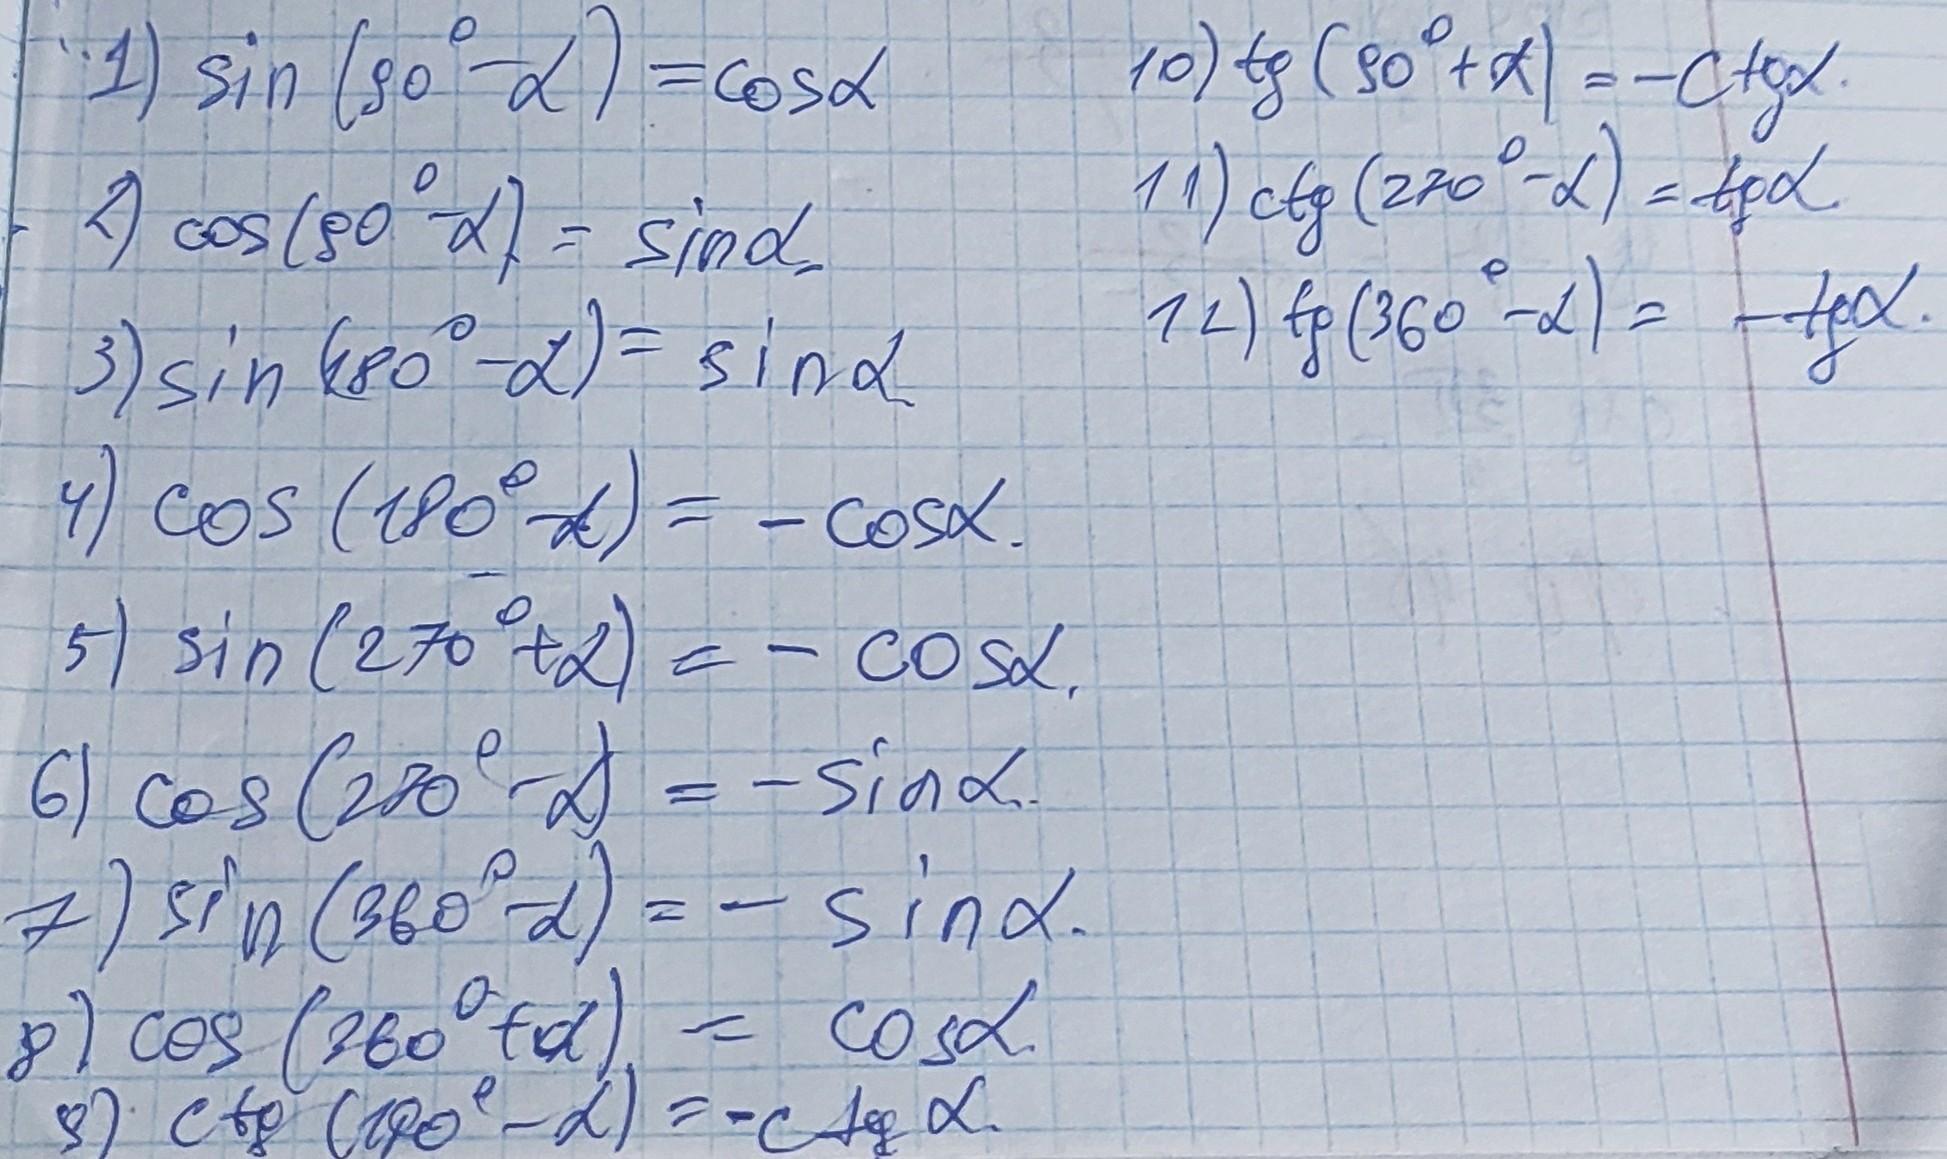 1) sin (90° - α) = cosα
2) cos(90° - α) = sinα.
3) sin (180° - α) = sinα
4) cos (180° - α) = - cosα.
5) sin (270° + α) = - cosα.
6) cos (270° - α) = - sinα.
7) sin (360° - α) = - sinα.
8) cos (360° + α) = cosα.
9) ctg (180° - α) = - ctg α.
10) tg (90° + α) = - ctgα.
11) ctg (270° - α) = tgα.
12) tg (360° - α) = - tgα.